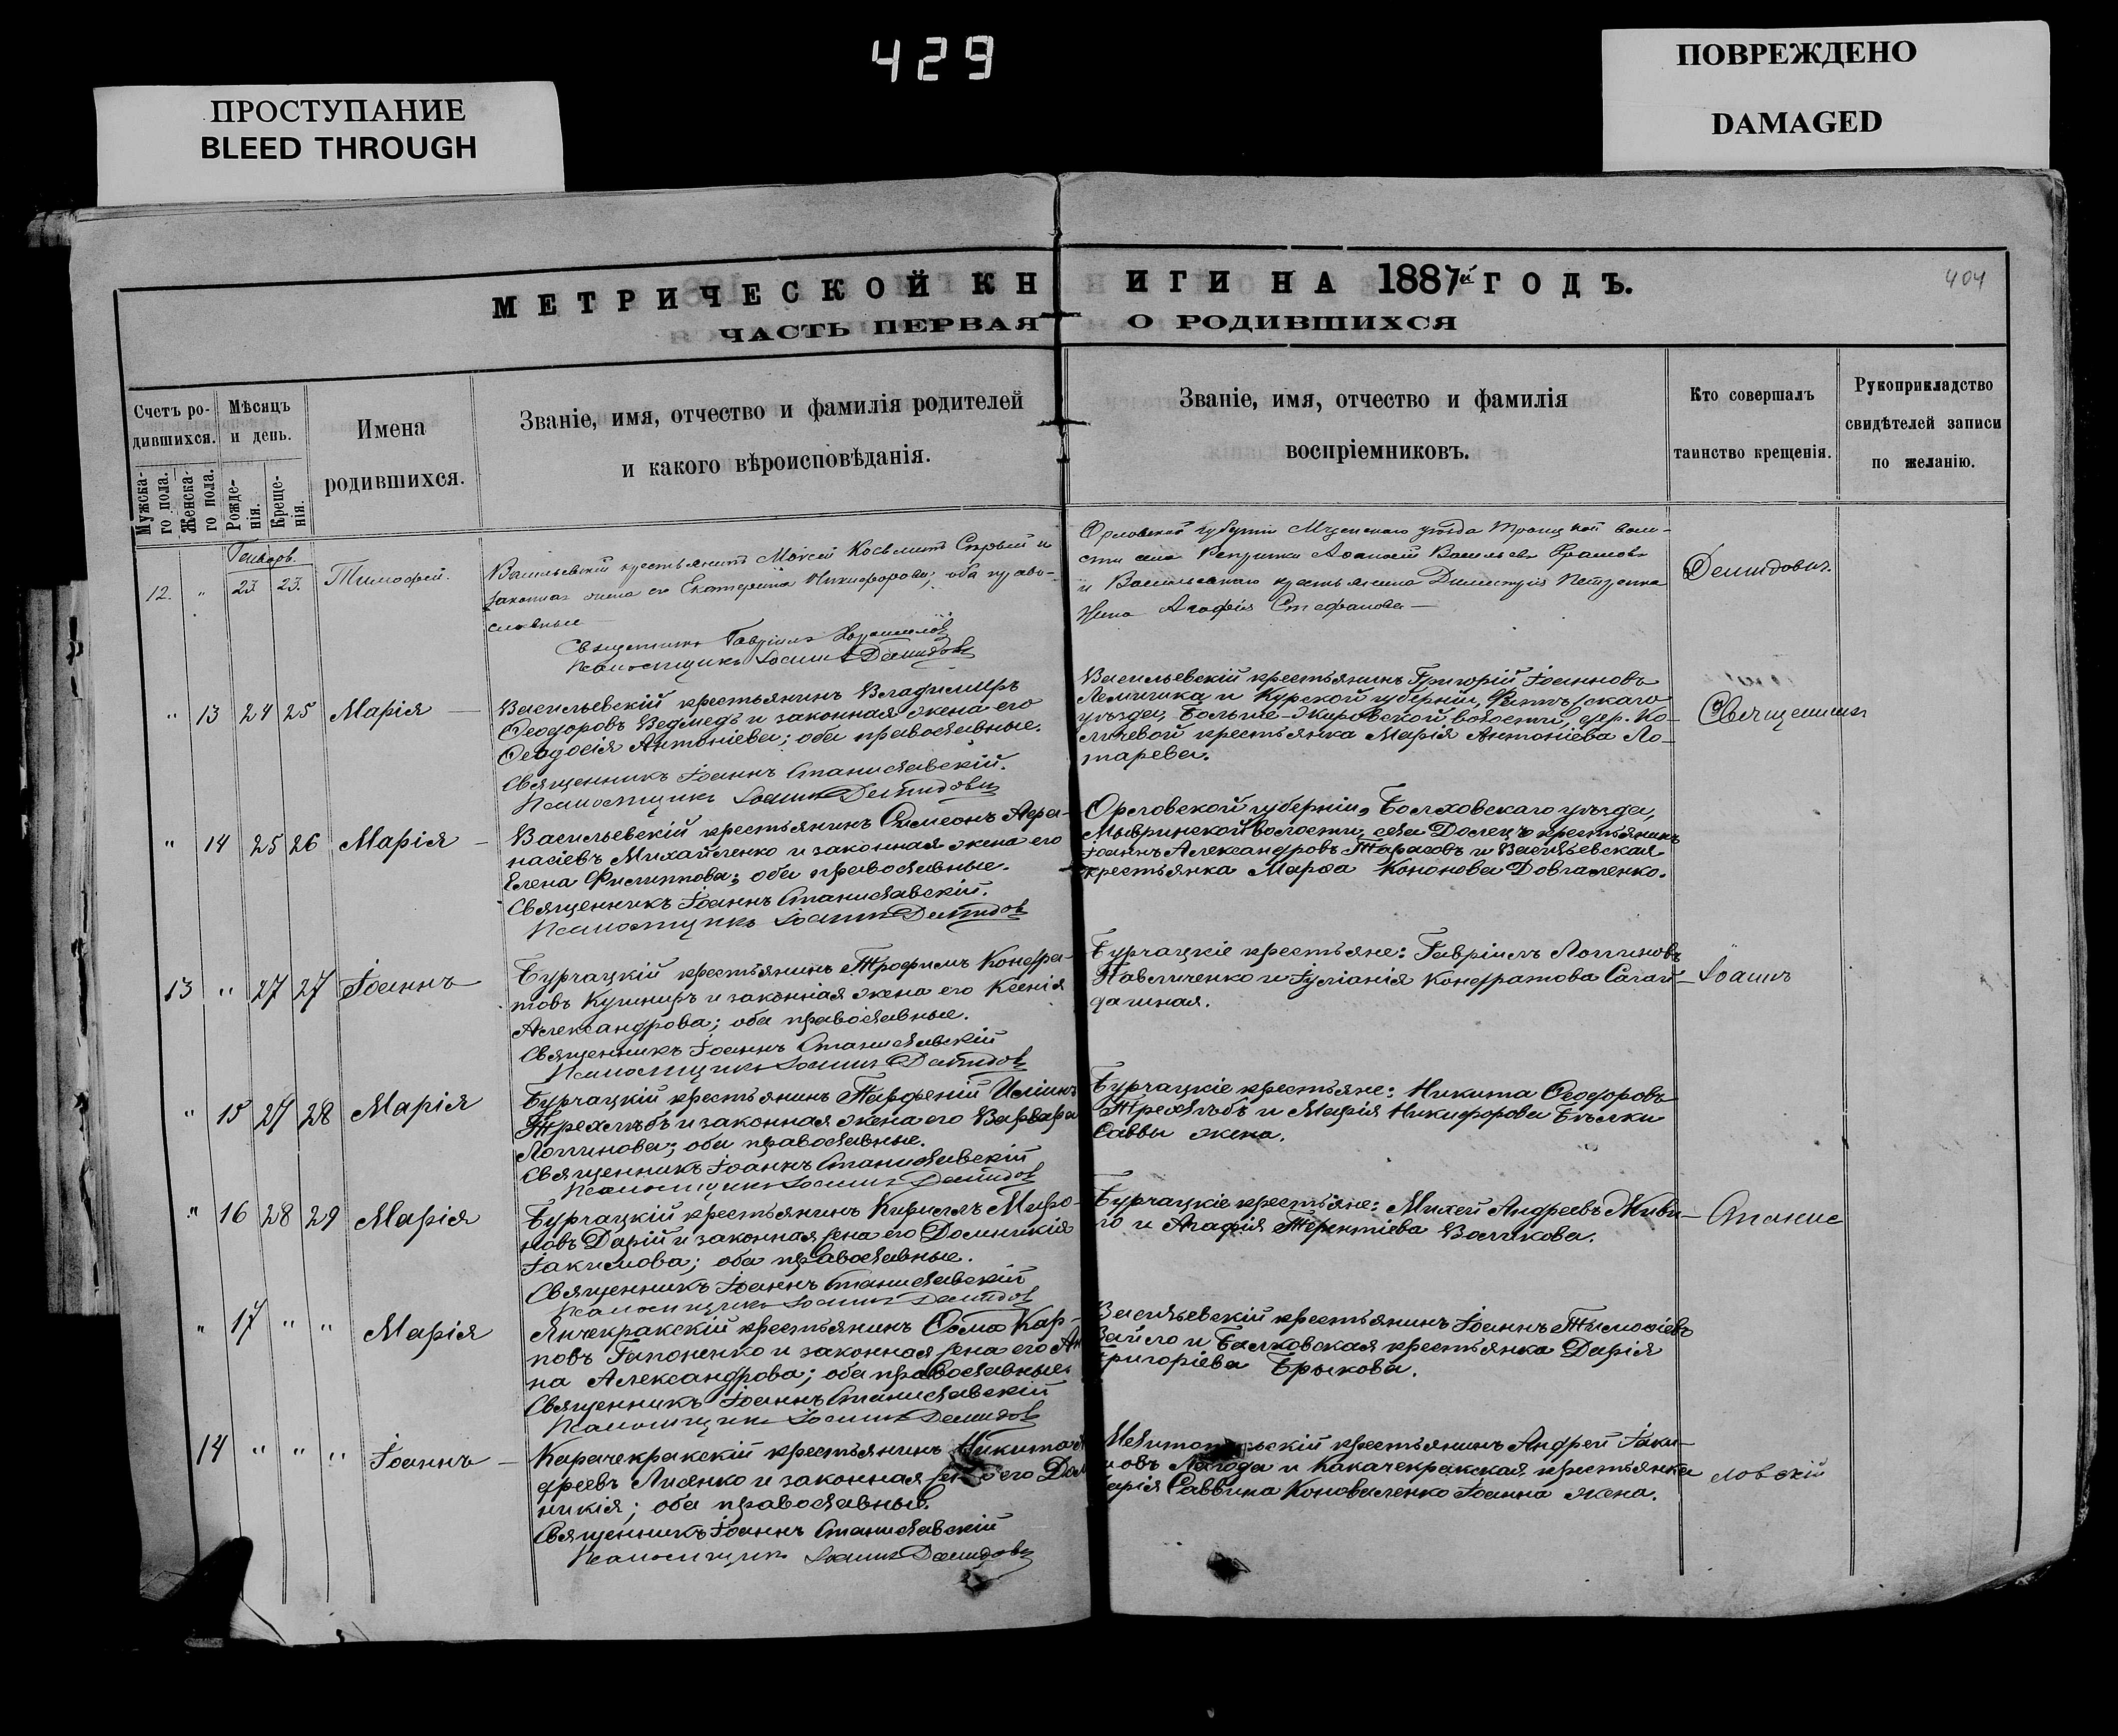 429
ПРОСТУПАНИЕ
BLEED THROUGH
ПОВРЕЖДЕНО
DAMAGED
МЕТРИЧЕСКОЙ КНИГИ НА 1887й ГОДЪ.
404
ЧАСТЬ ПЕРВАЯ О РОДИВШИХСЯ
Счетъ ро-
дившихся.
Мужска-
го пола.
Женска-
го пола.
Мѣсяцъ
и день.
Рожде-
нія.
Креще-
нія.
Имена
родившихся.
Званіе, имя, отчество и фамилія родителей
и какого вѣроисповѣданія.
Званіе, имя, отчество и фамилія
воспріемниковъ.
Кто совершалъ
таинство крещенія.
Рукоприкладство
свидѣтелей записи
по желанію.
Генваръ.
12. " 23. 23. Тимофей.
Васильевскій крестьянинъ Моисей Косьминъ Сѣрый и
законная жена его Екатерина Никифорова; оба право-
славные
Священникъ Гавріилъ
Псаломщикъ Іоаннъ Демидовъ
Орловской губерніи Мценскаго уѣзда Троицкой воло-
сти села Аѳанасій Васильевъ
и Васильевскаго крестьянина Димитрія Петренка
жена Агафія Стефанова
Демидовъ.
" 13 24 25 Марія
Васильевскій крестьянинъ Владимиръ
Ѳеодоровъ Ведмедь и законная жена его
Ѳеодосія Антоніева; оба православные.
Священникъ Іоаннъ Станиславскій.
Псаломщикъ Іоаннъ Демидовъ
Васильевскій крестьянинъ Григорій Іоанновъ
Лемичика и Курской губерніи, Фатѣжскаго
уѣзда, Больше-Жировской волости, дер. Ко-
личевой крестьянка Марія Антоніева Ло-
тарева.
Священникъ
" 14 25 26 Марія
Васильевскій крестьянинъ Симеонъ Аѳа-
насіевъ Михайленко и законная жена его
Елена Филиппова; оба православные.
Священникъ Іоаннъ Станиславскій.
Псаломщикъ Іоаннъ Демидовъ
Орловской губерніи, Болховскаго уѣзда,
Мывринской волости, села Долецъ крестьянинъ
Іоаннъ Александровъ Тарасовъ и Васильевская
крестьянка Марѳа Кононова Довгаленко.
13 " 27 27 Іоаннъ
Бурчацкій крестьянинъ Трофимъ Кондра-
товъ Кушниръ и законная жена его Ксенія
Александрова; оба православные.
Священникъ Іоаннъ Станиславскій
Псаломщикъ Іоаннъ Демидовъ
Бурчацкіе крестьяне: Гавріилъ Логиновъ
Павличенко и Іуліанія Кондратова Сагай-
дачная.
Іоаннъ
" 15 27 28 Марія
Бурчацкій крестьянинъ Парфеній Иліинъ
Трехлѣбъ и законная жена его Варвара
Логинова; оба православные.
Священникъ Іоаннъ Станиславскій
Псаломщикъ Іоаннъ Демидовъ
Бурчацкіе крестьяне: Никита Ѳеодоровъ
Трехлѣбъ и Марія Никифорова Бѣлки
Саввы жена.
" 16 28 29 Марія
Бурчацкій крестьянинъ Кириллъ Миро-
новъ Дарій и законная жена его Домникія
Іакимова; оба православные.
Священникъ Іоаннъ Станиславскій
Псаломщикъ Іоаннъ Демидовъ
Бурчацкіе крестьяне: Михей Андреевъ Жива-
го и Агафія Терентіева Воликова.
Станис
" 17 " " Марія
Янчекракскій крестьянинъ Ѳома Кар-
повъ Гапоненко и законная жена его Ан
на Александрова; оба православные.
Священникъ Іоаннъ Станиславскій
Псаломщикъ Іоаннъ Демидовъ
Васильевскій крестьянинъ Іоаннъ Тимоѳіевъ
и Балковская крестьянка Дарія
Григоріева Брыкова.
14 " " " Іоаннъ
Карачекракскій крестьянинъ Никита
дреевъ Лисенко и законная его Дом
никія; оба православные.
Священникъ Іоаннъ Станиславскій
Псаломщикъ Іоаннъ Демидовъ
крестьянинъ Андрей Іаки-
мовъ Лагода и Карачекракская крестьянка
Марія Саввина Коноваленко Іоанна жена.
ловскій